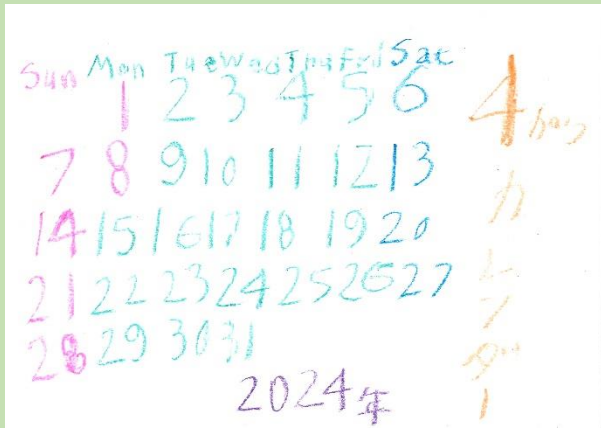 Sun Mon Tue Wed Thu Fri Sat
1 2 3 4 5 6
7 8 9 10 11 12 13
14 15 16 17 18 19 20
21 22 23 24 25 26 27
28 29 30 31
2024年
4
カレンダー